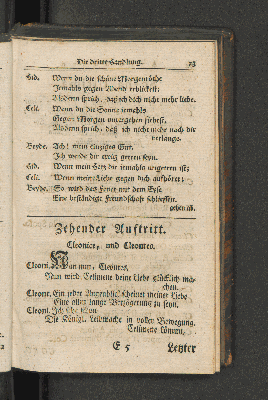 Die dritte Handlung. 73
Sid. Wenn du die schöne Morgenröthe
Jemahls gegen Abend erblickest;
Alsdenn sprich, daß ich dich nicht mehr liebe.
Celi. Wenn du die Sonne jemahls
Gegen Morgen untergehen siehest,
Alsdenn sprich, daß ich nicht mehr nach dir
verlange.
Beyde. Ich! mein einziges Gut,
Ich werde dir ewig getreu seyn.
Sid. Wenn mein Herz dir jemahls ungetreu ist;
Celi. Wenn meine Liebe gegen dich aufhöret;
Beyde. So wird das Feuer mit dem Eyse
Eine beständige Freundschaft schliessen.
gehen ab.
Zehender Auftritt.
Cleonice, und Cleomeo.
Cleoni. Nun, Cleomeo,
Nun wird Celimene deine Liebe glücklich ma-
chen.
Cleom. Ein jeder Augenblick scheinet meiner Liebe
Eine allzu lange Verzögerung zu seyn.
Cleoni. Ich
Die Königl. Leibwache in voller Bewegung.
Celimene kömmt.
E 5 Letzter